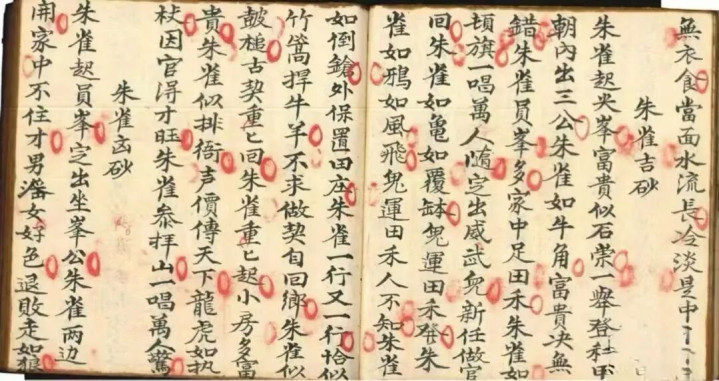 無衣食當面水流長冷淡是中
朱雀吉砂
朱雀起尖峯富貴似石榮一舉登科甲
朝內出三公朱雀如牛角富貴决無
錯朱雀員峯多家中足田禾朱雀如
頓旗一唱萬人随定出威武新任做官
回朱雀如亀如覆缽鬼運田禾發朱
雀如鴉如風飛鬼運田禾人不知朱雀
如倒鎗外保置田庄朱雀一行又一行恰似
竹篙捍牛羊不求做契自回鄉朱雀似
皷槌古契重匕回朱雀重匕起小房多富
貴朱雀似排衙声價傳天下龍虎如执
杖因官淂才旺朱雀叅拜山一唱萬人驚
朱雀凶砂
朱雀起員峯定出坐峯公朱雀两边
開家中不住才男滛女好色退敗走如狼